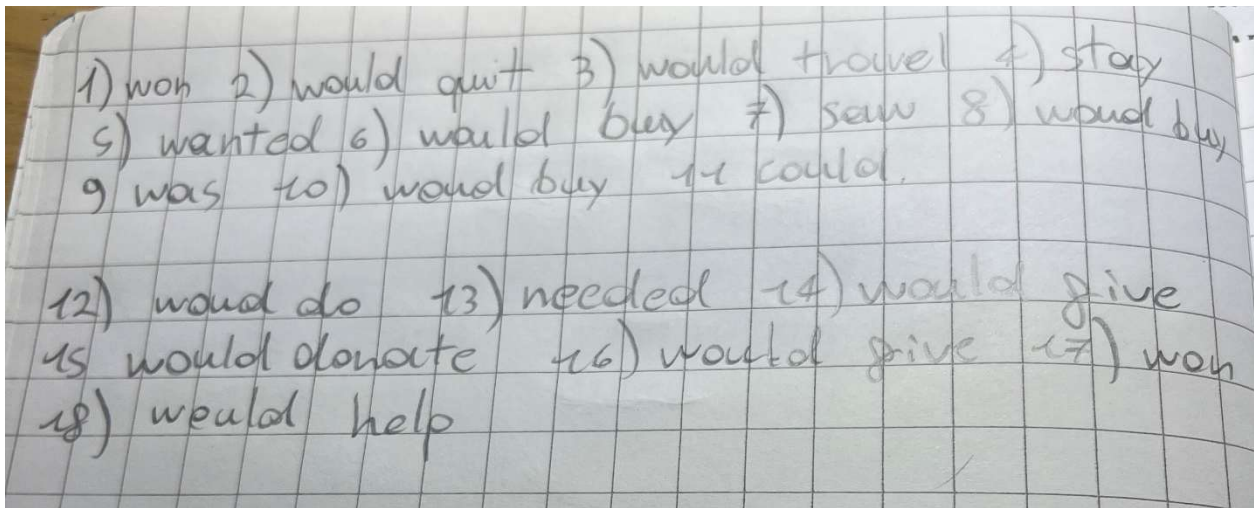 1) won 2) would quit 3) would travel 4) stay
5) wanted 6) would buy 7) saw 8) woud buy
9) was 10) woud buy 11 could.
12) woud do 13) needed 14) would give
15 would donate 16) would give 17) won
18) would help